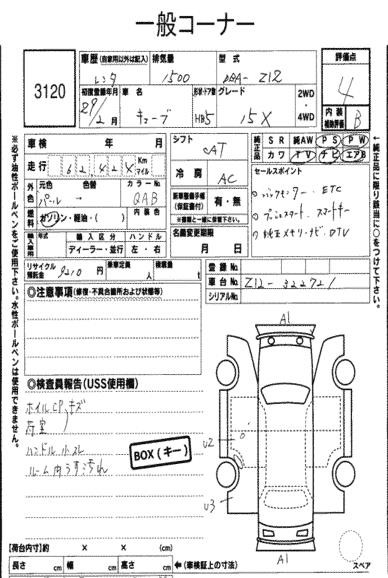 一般コーナー
3120
車歴(自家用以外は記入) 排気量 型式 評価点
レンタ 1500 DBA- Z12 4
初度登録年月 車名 形状・ドア数 グレード 2WD・4WD
29/2月 キューブ HB5 15X
内装補助評価 B
車検 年 月 シフト 純正品 SR 純AW PS PW
CAT カワ TV ナビ エアB
走行 62,424 Km マイル
冷房 AC セールスポイント
外色 元色 色替 カラーNo.
パール → QAB
○バックモニター・ETC
燃料 ガソリン・軽油・( ) 内装色
新車整備手帳(保証書付) 有・無
※書類と一緒にご提出下さい。
○プッシュスタート スマートキー
輸入車用 年式 輸入区分 ハンドル
ディーラー・並行 左・右
名義変更期限 月 日
○純正メモリナビ DTV
リサイクル預託金 9210円 乗車定員 人 積載量 t
登録No.
車台No. Z12-322721
シリアルNo.
◎注意事項(修復・不具合箇所および状態等)
A1
◎検査員報告(USS使用欄)
ホイルCP、キズ
荷室)
ハンドル 小スレ
ルーム内うす汚れ
BOX(キー)
U2
U3
A1
スペア
【荷台内寸】約 × × (cm)
長さ cm 幅 cm 高さ cm ←(車検証上の寸法)
※必ず油性ボールペンをご使用下さい。水性ボールペンは使用できません。
←純正品に限り該当に○をつけて下さい。